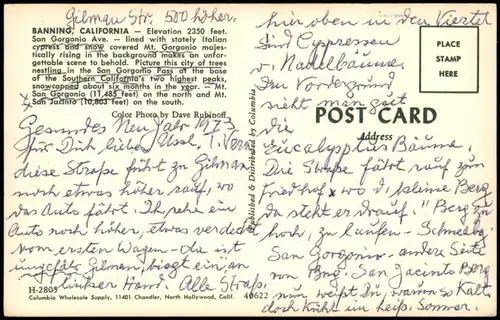 Gilman Str. 500 höher.
BANNING, CALIFORNIA — Elevation 2350 feet.
San Gorgonio Ave. — lined with stately Italian
cypress and snow covered Mt. Gorgonio majes-
tically rising in the background makes an unfor-
gettable scene to behold. Picture this city of trees
nestling in the San Gorgonio Pass at the base
of the Southern California's two highest peaks,
snowcapped about six months in the year. — Mt.
San Gorgonio (11,485 feet) on the north and Mt.
San Jacinto (10,803 feet) on the south.
Color Photo by Dave Rubinoff
Gesundes Neu Jahr 1973
für Dich liebe
diese Straße führt zu Gilman
noch etwas höher rauf, wo
das Auto fährt. Ich sehe ein
Auto noch höher, etwas verdeckt
vom ersten Wagen - da ist
ungefähr Gilman, biegt ein, an
linker Hand. Alle Straß.
H-2805
Columbia Wholesale Supply, 11401 Chandler, North Hollywood, Calif. 40622
Published & Distributed by Columbia
hier oben in den Viertel
sind Cypressen
u. Nadelbäume.
Im Vordergrund
sieht man gut
die
Eucalyptus Bäume.
Die Straße fährt rauf zum
Friedhof wo d. kleine Berg
da steht er drauf." Berg zu
hoch, zu laufen - Schneeberg
San Gorgonio - andere Seite
von Bng. San Jacinto Berg
nun weißt Du, warum so Kalt
doch kühlt im heiß. Sommer.
PLACE
STAMP
HERE
POST CARD
Address